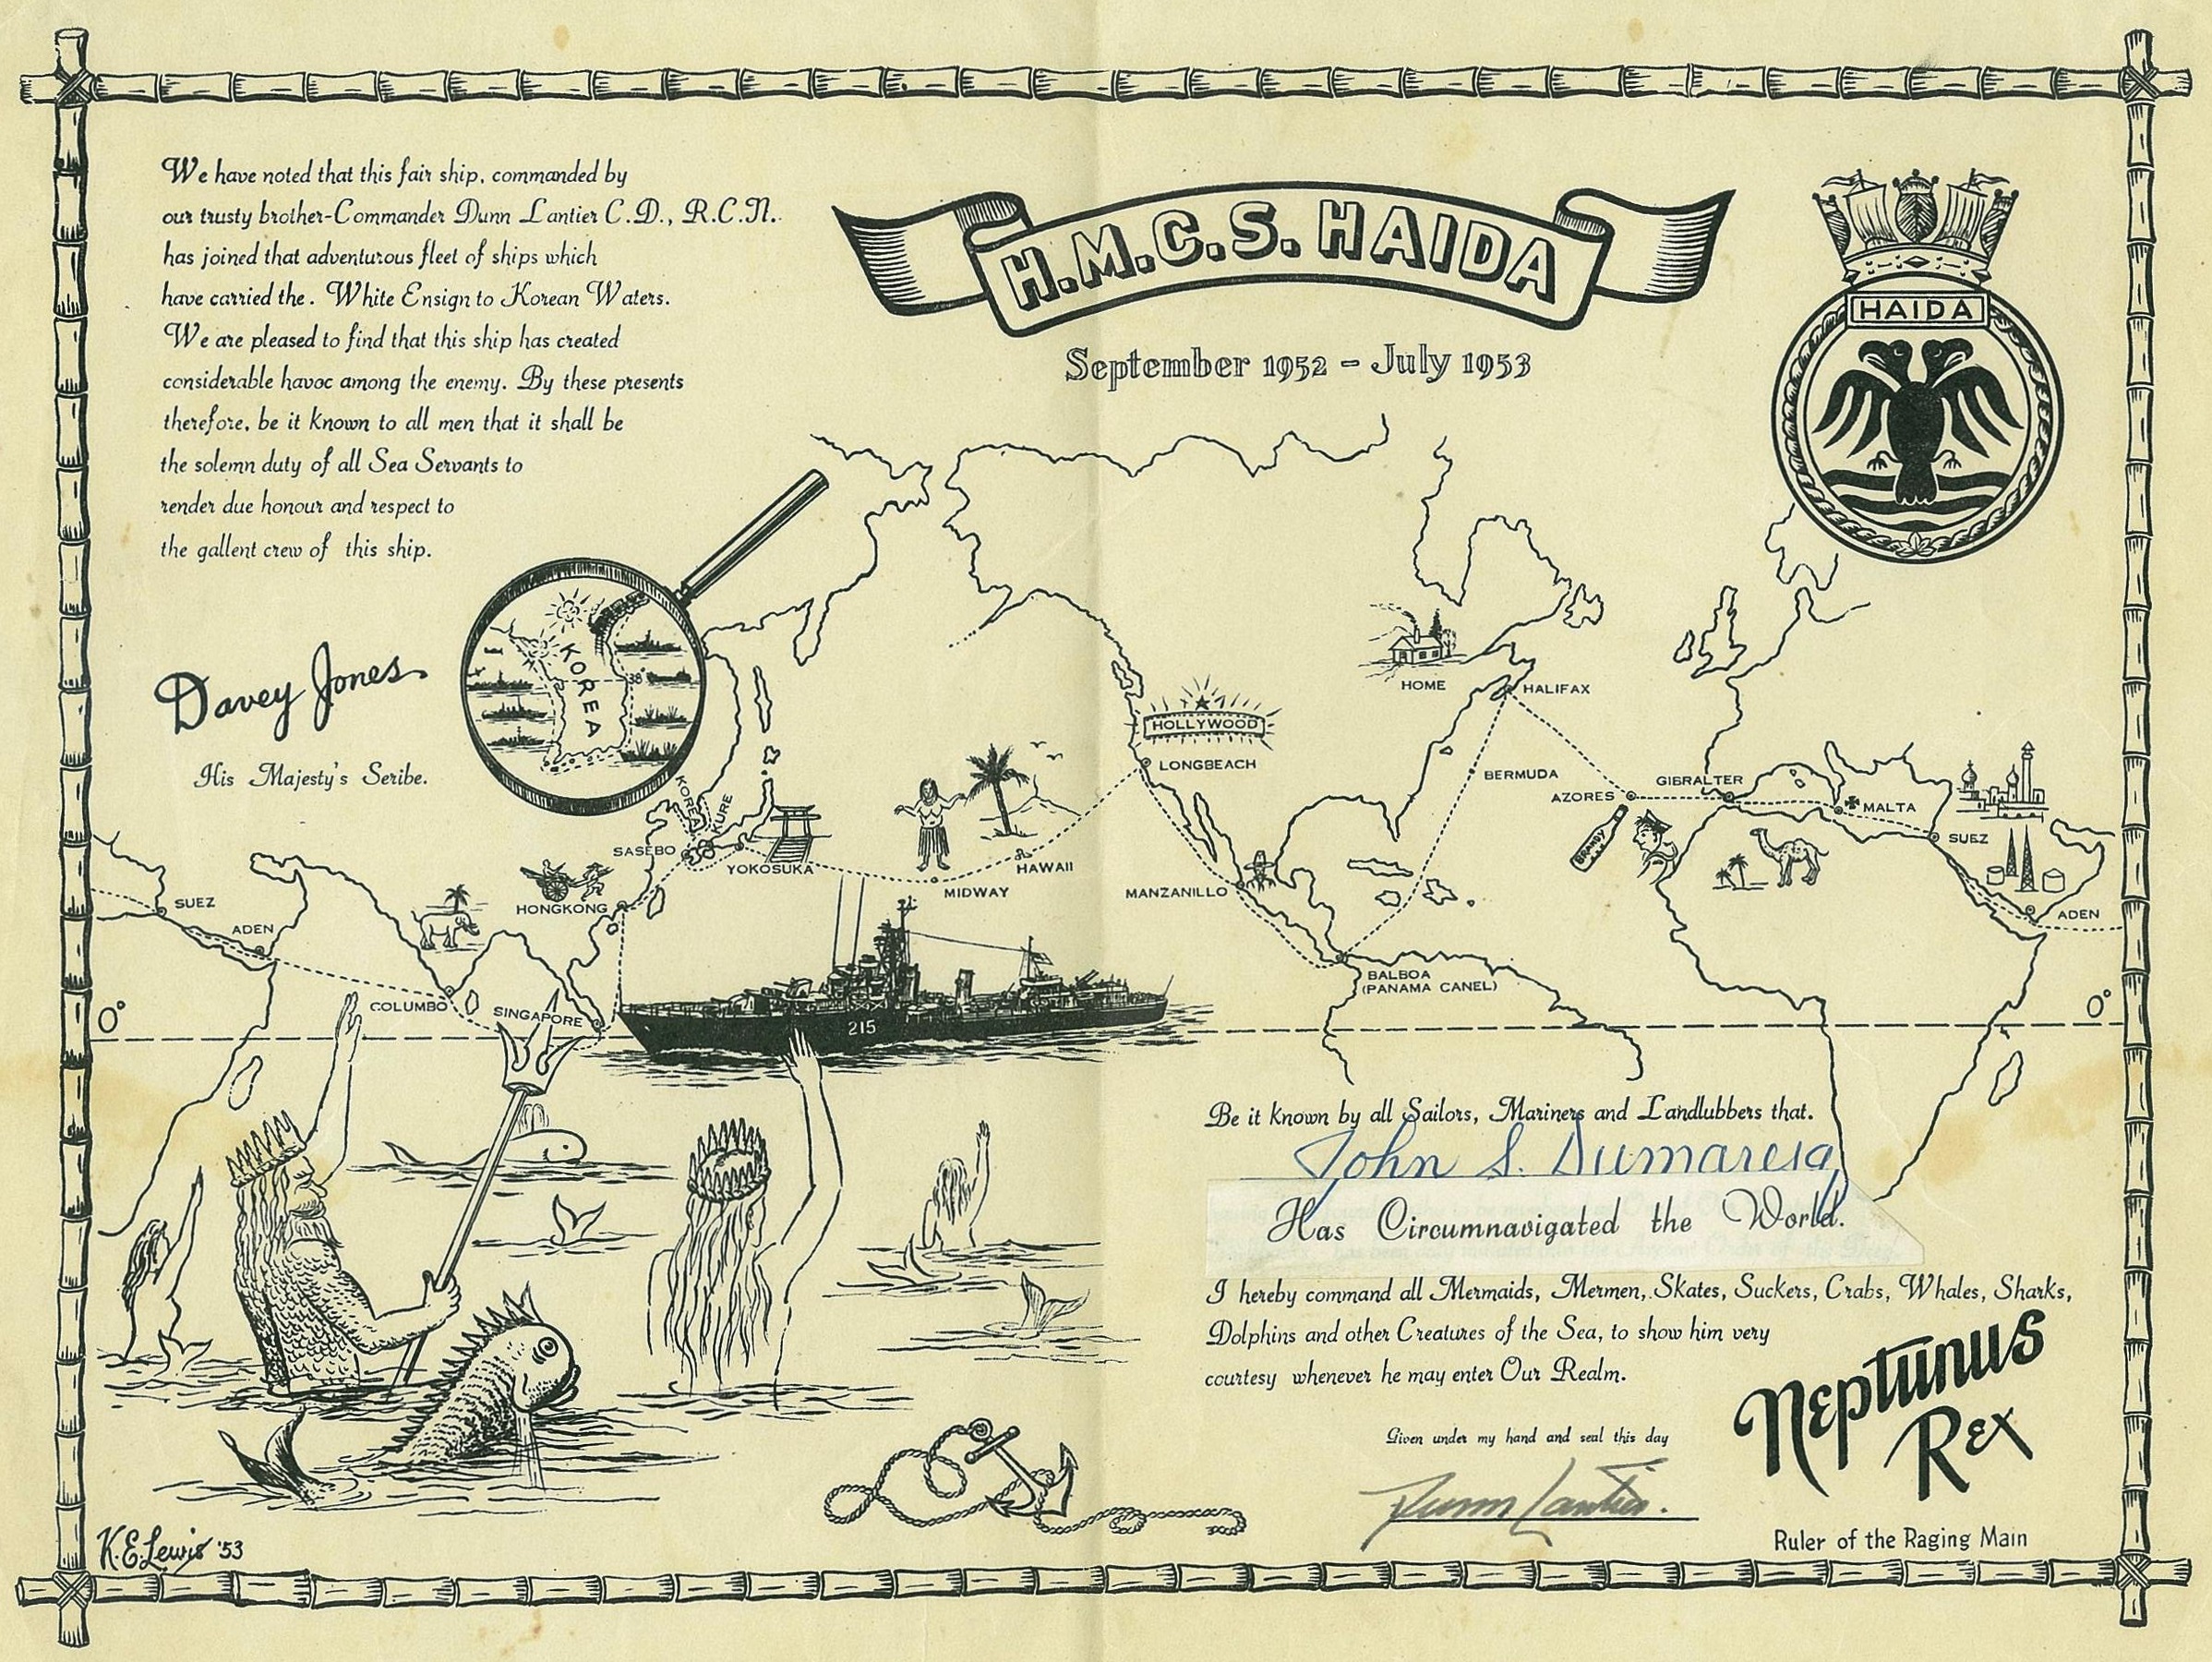 We have noted that this fair ship, commanded by
our trusty brother-Commander Dunn Lantier C.D., R.C.N.
has joined that adventurous fleet of ships which
have carried the. White Ensign to Korean Waters.
We are pleased to find that this ship has created
considerable havoc among the enemy. By these presents
therefore, be it known to all men that it shall be
the solemn duty of all Sea Servants to
render due honour and respect to
the gallent crew of this ship.
Davey Jones
His Majesty's Scribe.
H.M.C.S. HAIDA
September 1952 - July 1953
HAIDA
KOREA
38°
HOME
HALIFAX
HOLLYWOOD
LONGBEACH
BERMUDA
AZORES
GIBRALTER
MALTA
SUEZ
BRANDY
ADEN
KOREA
KURE
SASEBO
YOKOSUKA
HAWAII
MIDWAY
MANZANILLO
BALBOA
(PANAMA CANEL)
SUEZ
ADEN
HONGKONG
COLUMBO
SINGAPORE
0°
0°
215
Be it known by all Sailors, Mariners and Landlubbers that.
John S. Dumaresq
Has Circumnavigated the World.
I hereby command all Mermaids, Mermen, Skates, Suckers, Crabs, Whales, Sharks,
Dolphins and other Creatures of the Sea, to show him very
courtesy whenever he may enter Our Realm.
Given under my hand and seal this day
Dunn Lantier.
Neptunus
Rex
Ruler of the Raging Main
K.E. Lewis '53